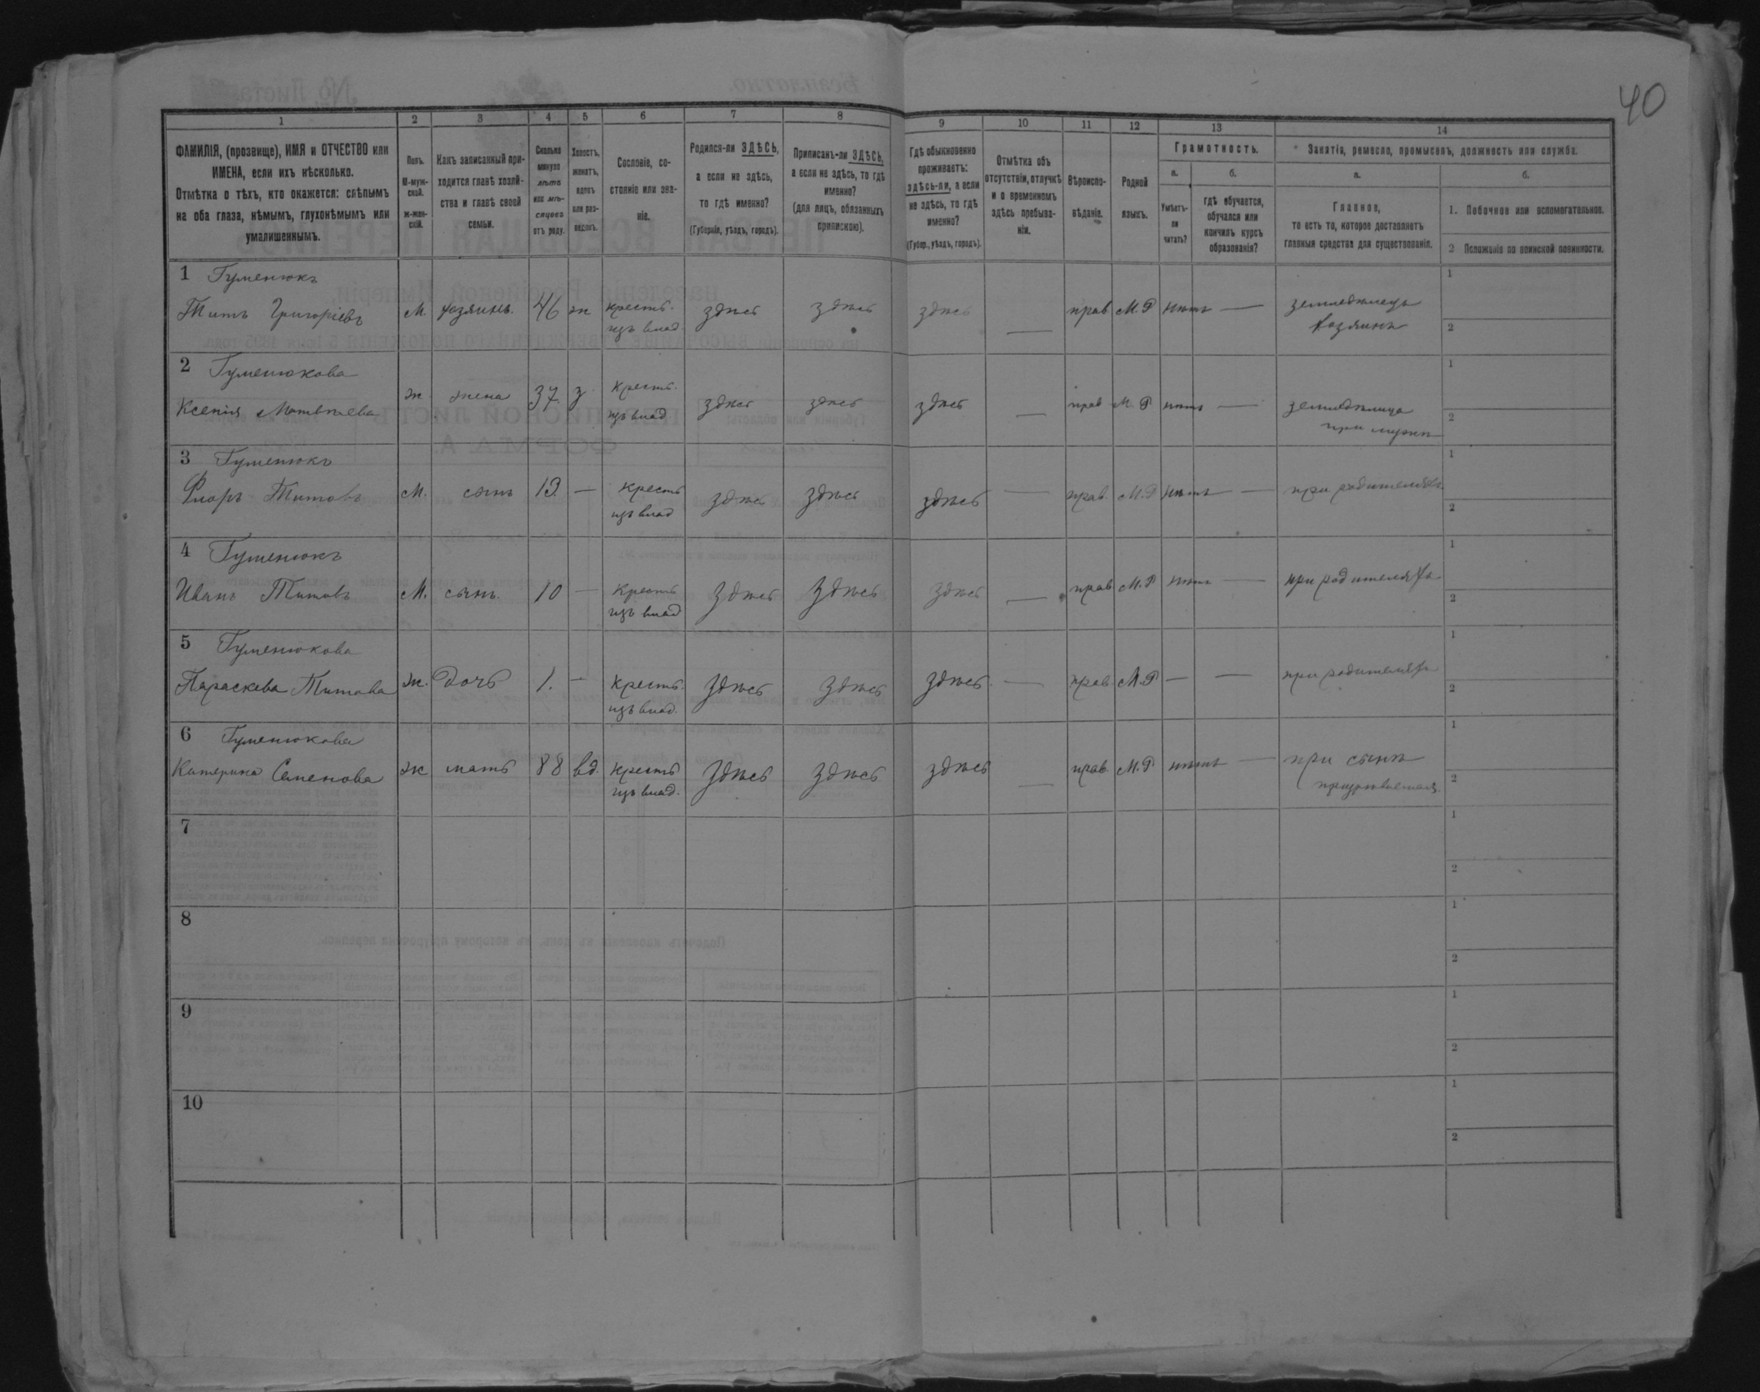 40
1
2
3
4
5
6
7
8
9
10
11
12
13
14
ФАМИЛІЯ, (прозвище), ИМЯ и ОТЧЕСТВО или
ИМЕНА, если ихъ нѣсколько.
Отмѣтка о тѣхъ, кто окажется: слѣпымъ
на оба глаза, нѣмымъ, глухонѣмымъ или
умалишеннымъ.
Полъ.
М-муж-
ской.
ж-жен-
скій.
Какъ записанный при-
ходится главѣ хозяй-
ства и главѣ своей
семьи.
Сколько
минуло
лѣтъ
или мѣ-
сяцевъ
отъ роду.
Холостъ,
женатъ,
вдовъ
или раз-
веденъ.
Сословіе, со-
стояніе или зва-
ніе.
Родился-ли ЗДѢСЬ,
а если не здѣсь,
то гдѣ именно?
(Губернія, уѣздъ, городъ).
Приписанъ-ли ЗДѢСЬ,
а если не здѣсь, то гдѣ
именно?
(для лицъ, обязанныхъ
припискою).
Гдѣ обыкновенно
проживаетъ:
здѣсь-ли, а если
не здѣсь, то гдѣ
именно?
(Губер., уѣздъ, городъ).
Отмѣтка объ
отсутствіи, отлучкѣ
и о временномъ
здѣсь пребыва-
ніи.
Вѣроиспо-
вѣданіе.
Родной
языкъ.
Грамотность.
а.
б.
Умѣетъ-
ли
читать?
гдѣ обучается,
обучался или
кончилъ курсъ
образованія?
Занятія, ремесло, промыселъ, должность или служба.
а.
б.
Главное,
то есть то, которое доставляетъ
главныя средства для существованія.
1. Побочное или вспомогательное.
2 Положеніе по воинской повинности.
1 Гуменюкъ
Титъ Григоріевъ М. хозяинъ. 46 ж крестъ. здѣсь здѣсь здѣсь — прав М.Р нѣтъ — земледѣлецъ 1
изъ влад. хозяинъ 2
2 Гуменюкова
Ксенія Матвѣева ж жена 37 з крестъ. здѣсь здѣсь здѣсь — прав М.Р нѣтъ — земледѣлица 1
изъ влад при мужѣ 2
3 Гуменюкъ
Флоръ Титовъ М. сынъ 13. — крестъ здѣсь здѣсь здѣсь — прав. М.Р нѣтъ — при родителяхъ 1
изъ влад 2
4 Гуменюкъ
Иванъ Титовъ М. сынъ. 10 — крестъ здѣсь здѣсь здѣсь — прав М.Р нѣтъ — при родителяхъ 1
изъ влад 2
5 Гуменюкова
Параскева Титова ж. дочь 1. — крестъ. здѣсь здѣсь здѣсь. — прав М.Р — — при родителяхъ 1
изъ влад. 2
6 Гуменюкова
Катерина Семенова ж мать 88 вд. крестъ здѣсь здѣсь здѣсь — прав. М.Р нѣтъ — при сынѣ 1
изъ влад. 2
7
1
2
8
1
2
9
1
2
10
1
2